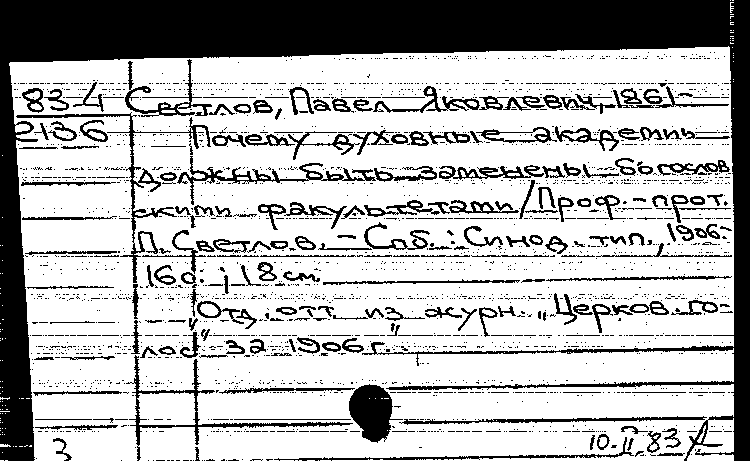 83-4 Светлов, Павел Яковлевич, 1861-
2136 Почему духовные академии
должны быть заменены богослов
скими факультетами / Проф.-прот.
П. Светлов. - Спб.: Синод. тип., 1906.-
16с.; 18 см.
Отд. отт. из журн. „Церков. го-
лос" за 1906 г.
3 10.II.83